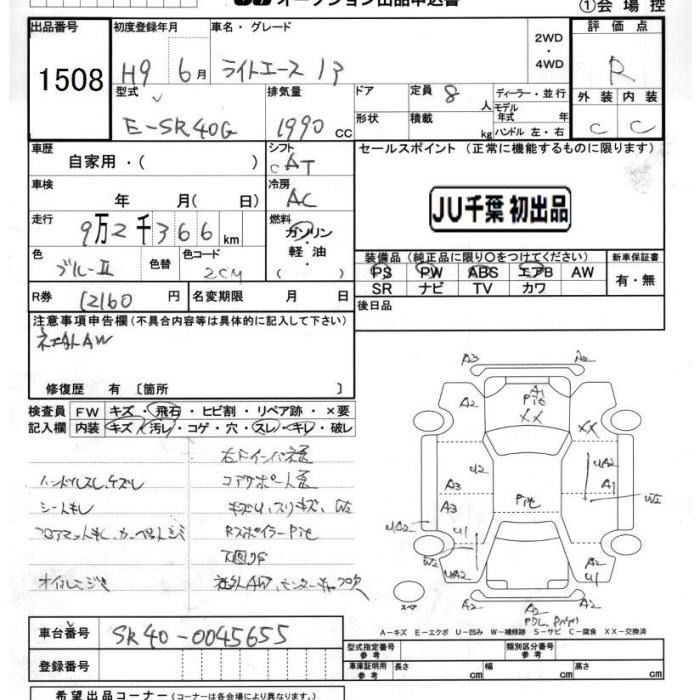 オークション出品申込書
①会場控
出品番号
1508
初度登録年月
H9 6月
車名・グレード
ライトエース
2WD
・
4WD
評価点
R
外装 内装
C C
型式
E-SR40G
排気量
1990 cc
ドア
形状
定員 8 人
積載 kg
ディーラー・並行
モデル年式 年
ハンドル 左・右
車歴
自家用・( )
シフト
AT
セールスポイント (正常に機能するものに限ります)
JU千葉 初出品
車検
年 月( 日)
冷房
AC
走行
9万2千366 km
燃料
ガソリン
・
軽油
色
ブルーⅡ
色替
色コード
2CM
装備品(純正品に限り○をつけてください)
PS PW ABS エアB AW
SR ナビ TV カワ
新車保証書
有・無
R券
12160 円
名変期限 月 日
後日品
注意事項申告欄(不具合内容等は具体的に記入して下さい)
社外AW
修復歴 有〔箇所 〕
検査員
記入欄
FW キズ・飛石・ヒビ割・リペア跡・×要
内装 キズ・汚レ・コゲ・穴・スレ・キレ・破レ
右Fインパネ歪
ハンドルスレ、ケズレ
コアサポート歪
シートキレ
キズU、スリキズ、W2
フロアマットキレ、カーペットシミ
RスポイラーPit
下回りサビ
オイルにじみ
社外AW、センターキャップ欠
A3
A2
A2
A1
Pit
XX
XX
U2
UA2
A1
A3
A3
Pit
W2
UA2
U1
W2
UA2
A2
U1
A2
A2
A2
スペア
A-キズ E-エクボ U-凹み W-補修跡 S-サビ C-腐食 XX-交換済
車台番号
SR40-0045655
登録番号
型式指定番号
参考
類別区分番号
参考
車庫証明用
参考
長さ cm
幅 cm
高さ cm
希望出品コーナー(コーナーは各会場により異なります。)